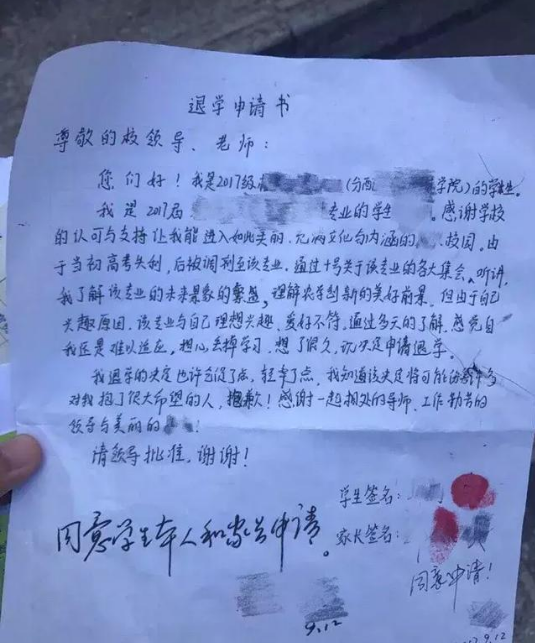 退学申请书
尊敬的校领导、老师：
您们好！我是2017级(分西学院)的学生
我是2017届专业的学生。感谢学校
的认可与支持让我能进入如此美丽、充满文化与内涵的校园，由
于当初高考失利，后被调剂至该专业。通过十号关于该专业的各大集会、听讲，
我了解该专业的未来景象的繁盛，理解新的美好前景。但由于自己
兴趣原因，该专业与自己理想兴趣、爱好不符。通过多天的了解，感觉自
我还是难以适应，担心丢掉学习，想了很久，就决定申请退学。
我退学的决定也许仓促了点，轻率了点，我知道该决定将可能伤害许多
对我抱了很大希望的人，抱歉！感谢一起相处的导师、工作勤苦的
领导与美丽的！
请领导批准，谢谢！
学生签名：
家长签名：
同意学生本人和家长申请。
同意申请！
9.12
17.9.12